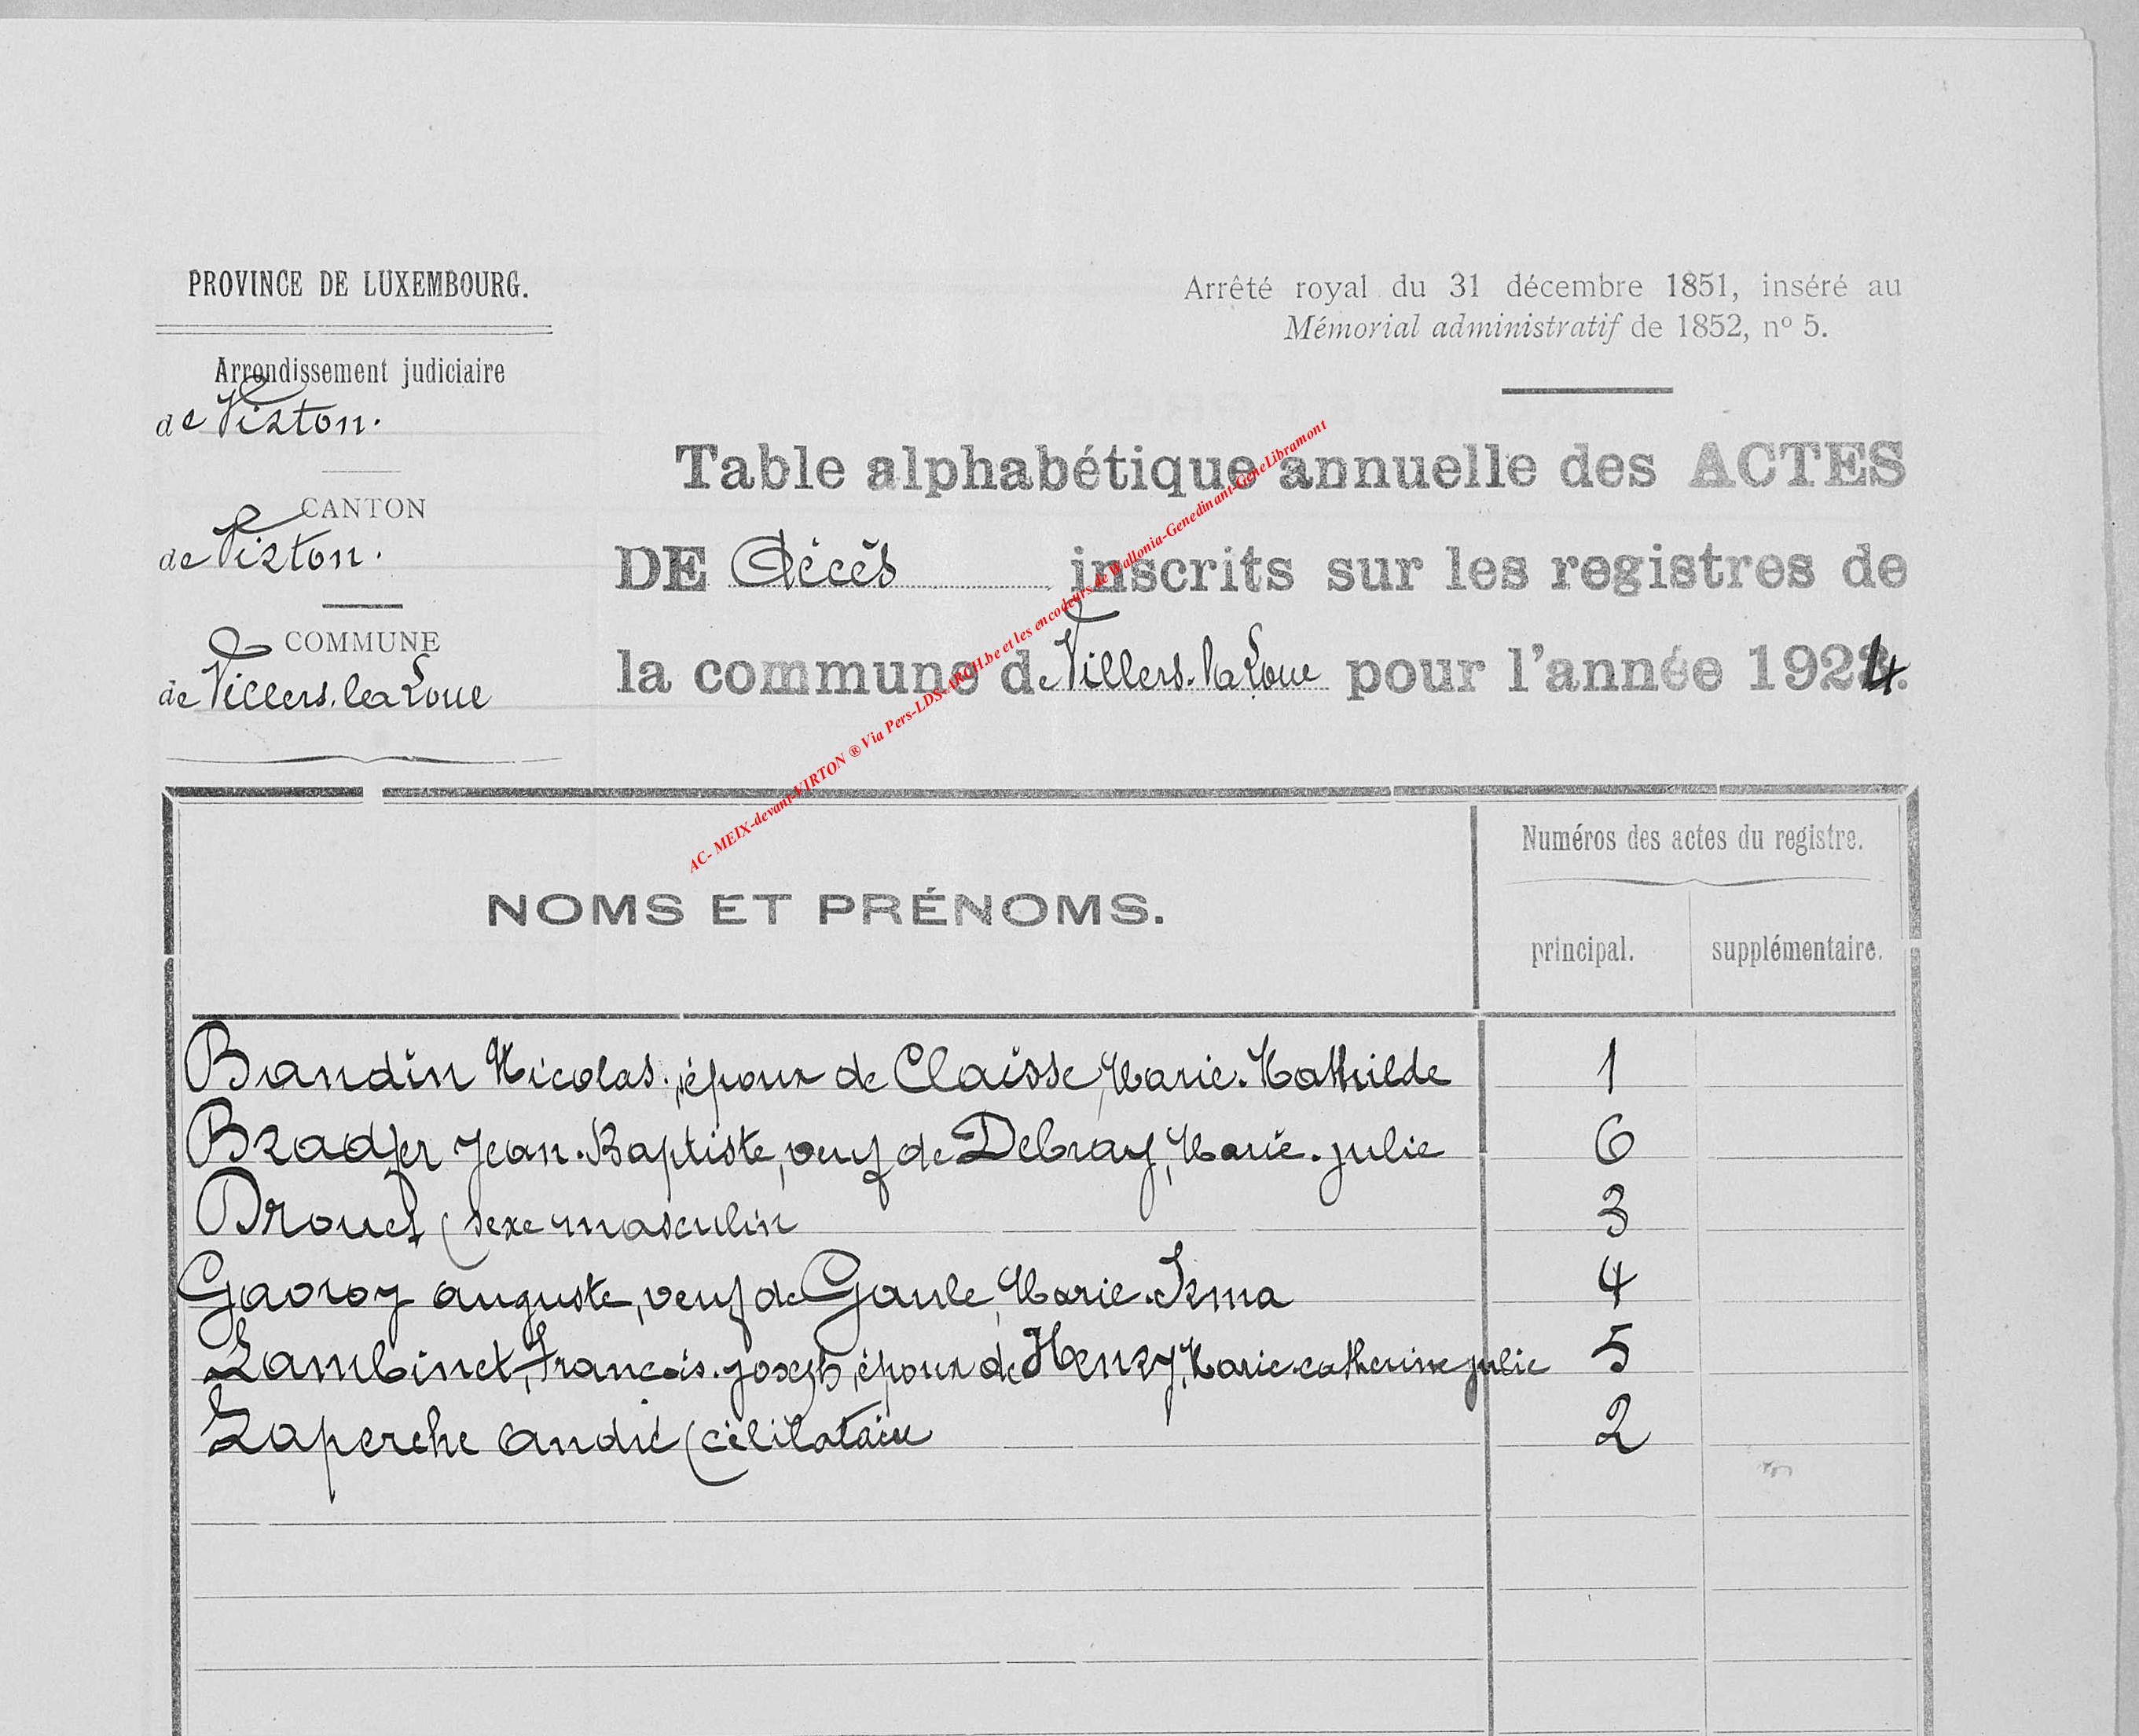 PROVINCE DE LUXEMBOURG.
Arrondissement judiciaire
de Virton.
CANTON
de Virton.
COMMUNE
de Villers-la Loue
Arrêté royal du 31 décembre 1851, inséré au
Mémorial administratif de 1852, nº 5.
Table alphabétique annuelle des ACTES
DE Décès inscrits sur les registres de
la commune de Villers-la Loue pour l'année 1924.
AC- MEIX-devant-VIRTON ® Via Pers-LDS-ARCH.be et les encodeurs de Wallonia-Genedinant-GeneLibramont
NOMS ET PRÉNOMS.
Numéros des actes du registre.
principal. supplémentaire.
Baudin Nicolas, époux de Claisse, Marie-Mathilde 1
Bradfer Jean-Baptiste, veuf de Debray, Marie-julie 6
Drouet (sexe masculin 3
Gavroy auguste, veuf de Gaule, Marie-Irma 4
Lambinet, François-joseph, époux de Henry, Marie-catherine julie 5
Laperche andré (célibataire 2